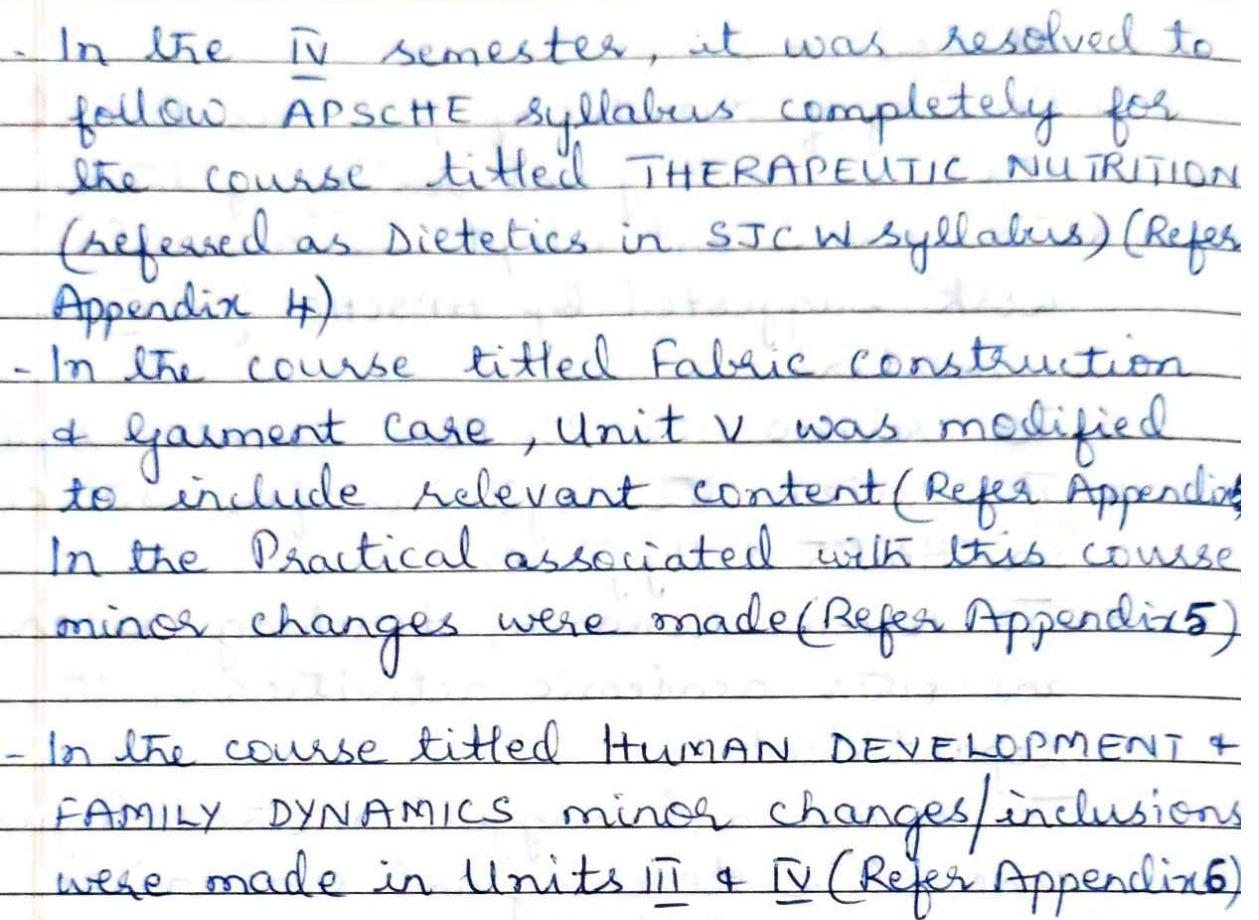 - In the IV semester, it was resolved to
follow APSCHE syllabus completely for
the course titled THERAPEUTIC NUTRITION
(referred as Dietetics in SJCW syllabus) (Refer
Appendix 4)
- In the course titled Fabric construction
& Garment Care, Unit V was modified
to include relevant content (Refer Appendix
In the Practical associated with this course
minor changes were made (Refer Appendix 5)
- In the course titled HUMAN DEVELOPMENT &
FAMILY DYNAMICS minor changes/inclusions
were made in Units III & IV (Refer Appendix 6)